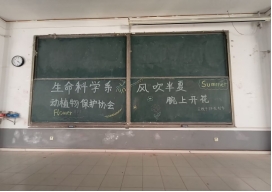 生命科学系
动植物保护协会
Flower
风吹半夏
腕上开花
Summer